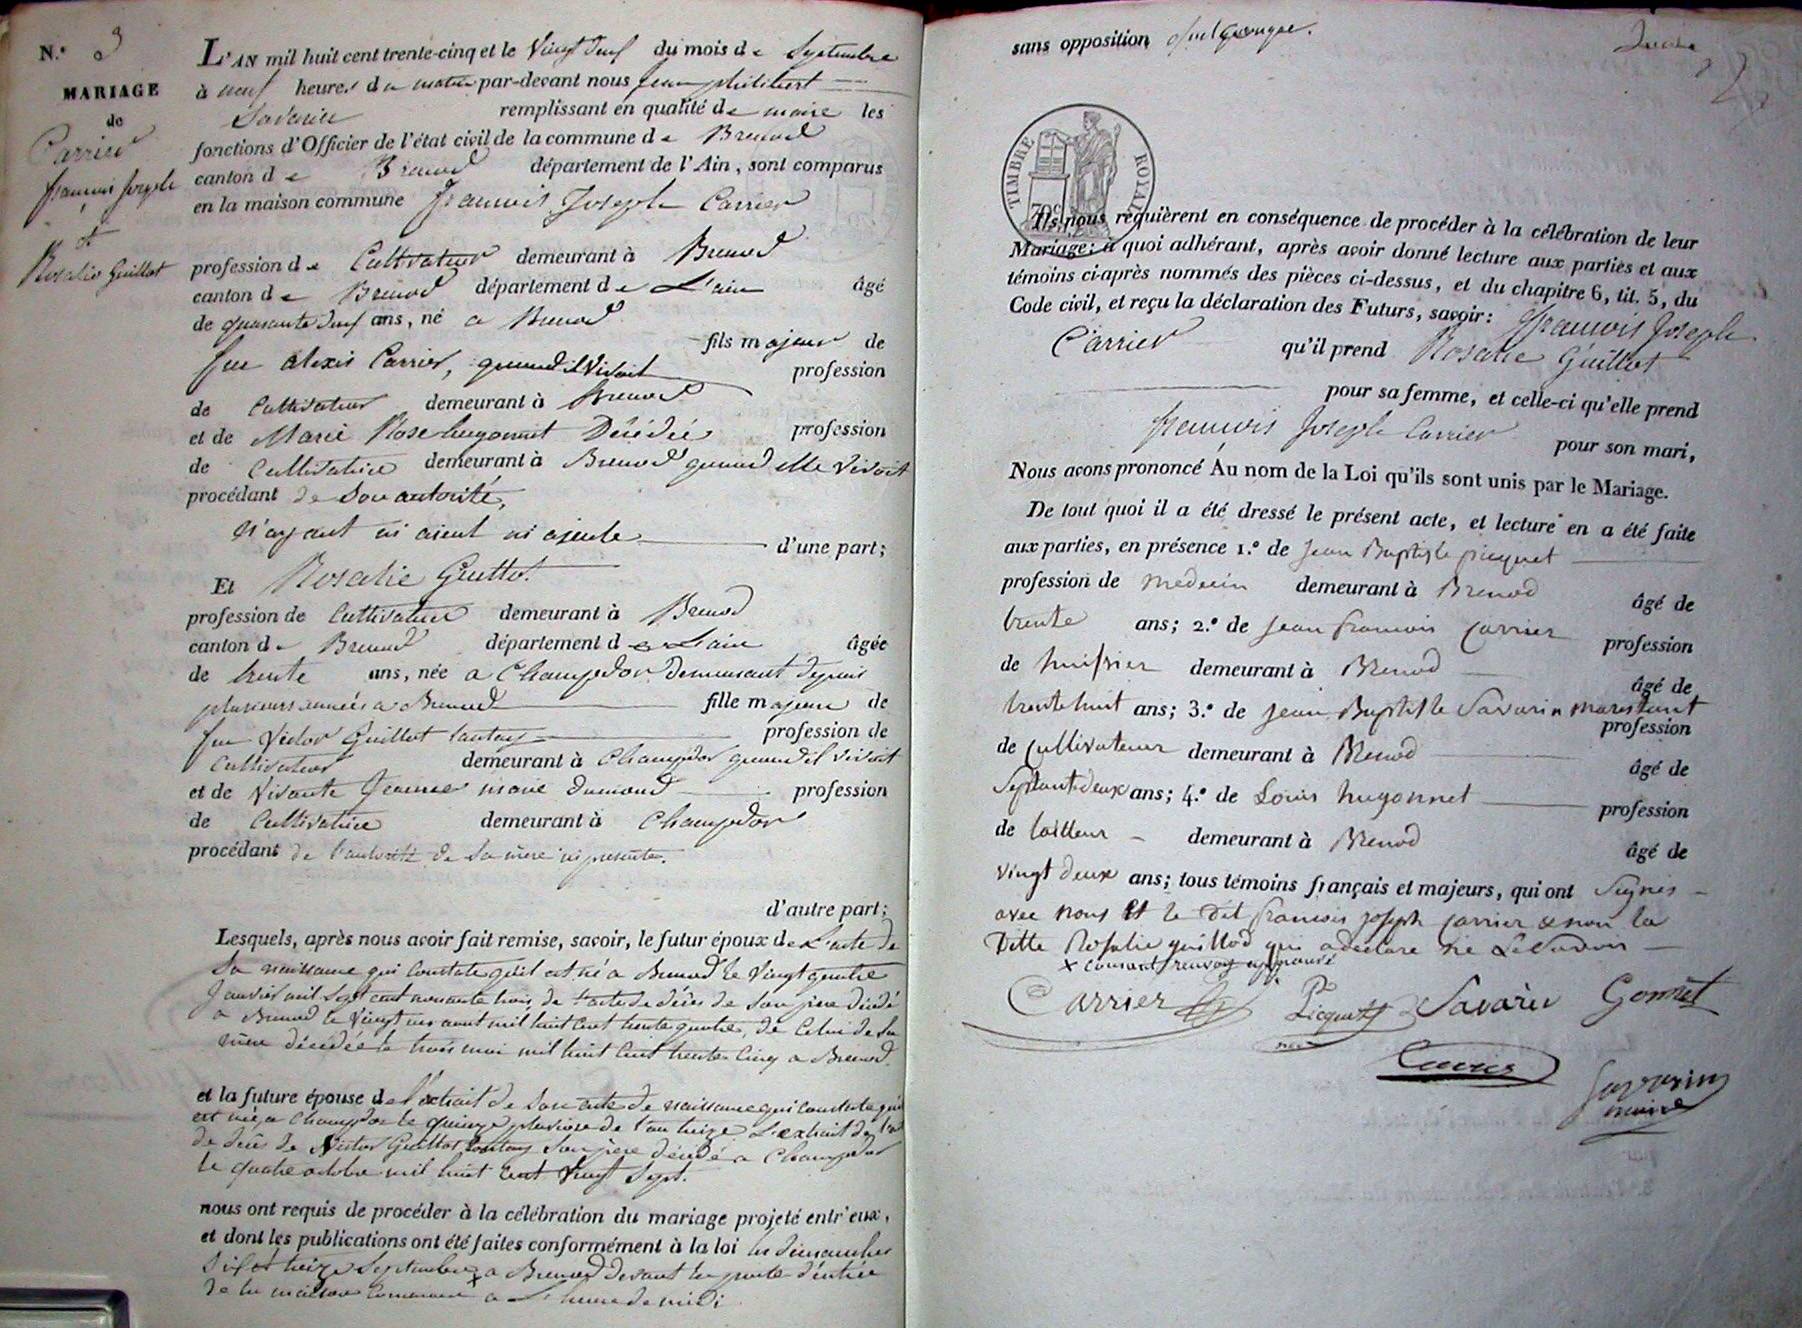 N.° 3
MARIAGE
de
Carrier
françois Joseph
et
Rosalie Guillot
L'AN mil huit cent trente-cinq et le Vingt neuf du mois de Septembre
à neuf heures du matin par-devant nous Jean philibert
Savarin remplissant en qualité de maire les
fonctions d'Officier de l'état civil de la commune de Brenod
canton de Brenod département de l'Ain, sont comparus
en la maison commune françois Joseph Carrier
profession de Cultivateur demeurant à Brenod
canton de Brenod département de L'ain âgé
de quarante deux ans, né a Brenod
fils majeur de
feu alexis Carrier, quand il Vivoit profession
de Cultivateur demeurant à Brenod
et de Marie Rose hugonnet Décédée profession
de Cultivatrice demeurant à Brenod quand elle Vivoit
procédant de Son autorité,
n'ayant ni aieul ni ajeule d'une part;
Et Rosalie Guillot
profession de Cultivateur demeurant à Brenod
canton de Brenod département de L'ain âgée
de trente ans, née a Champdor Demeurant depuis
plusieurs années a Brenod fille majeure de
feu Victor Guillot tantay profession de
Cultivateur demeurant à Champdor quand il vivoit
et de Vivante Jeanne marie Dumond profession
de Cultivatrice demeurant à Champdor
procédant de l'autorité de Sa mère ici présente.
d'autre part;
Lesquels, après nous avoir fait remise, savoir, le futur époux de L'acte de
Sa naissance qui constate qu'il est né a Brenod le Vingt quatre
Janvier mil Sept cent nonante trois de l'acte de décès de Son père décédé
a Brenod le Vingt un aout mil huit Cent trente quatre, de Celui de Sa
mère décédée le trois mai mil huit Cent trente Cinq a Brenod.
et la future épouse de l'extrait de Son acte de naissance qui constate qu'elle
est née a Champdor le quinze pluviose de l'an treize L'extrait de l'acte
de décès de Victor Guillot tantay Son père décédé a Champdor
le quatre octobre mil huit Cent Vingt Sept.
nous ont requis de procéder à la célébration du mariage projeté entr'eux,
et dont les publications ont été faites conformément à la loi les dimanches
Six et treize Septembre x a Brenod devant la porte d'entrée
de la maison Commune a L'heure de midi
sans opposition quelconque.
TIMBRE ROYAL
70c
Ils nous requièrent en conséquence de procéder à la célébration de leur
Mariage: à quoi adhérant, après avoir donné lecture aux parties et aux
témoins ci-après nommés des pièces ci-dessus, et du chapitre 6, tit. 5, du
Code civil, et reçu la déclaration des Futurs, savoir: françois Joseph
Carrier qu'il prend Rosalie Guillot
pour sa femme, et celle-ci qu'elle prend
françois Joseph Carrier pour son mari,
Nous avons prononcé Au nom de la Loi qu'ils sont unis par le Mariage.
De tout quoi il a été dressé le présent acte, et lecture en a été faite
aux parties, en présence 1.° de Jean Baptiste picquet
profession de medecin demeurant à Brenod âgé de
trente ans; 2.° de Jean francois Carrier profession
de huissier demeurant à Brenod âgé de
trente huit ans; 3.° de Jean Baptiste Savarin profession
de Cultivateur demeurant à Brenod âgé de
Septante deux ans; 4.° de Louis hugonnet profession
de tailleur demeurant à Brenod âgé de
vingt deux ans; tous témoins français et majeurs, qui ont Signés
avec nous et le dit francois joseph Carrier & non la
Ditte Rosalie guillod qui a declare ne Le Savoir
x Courant renvoy approuvé
Carrier Picquet Savarin Gonnet
Carrier
Savarin
maire